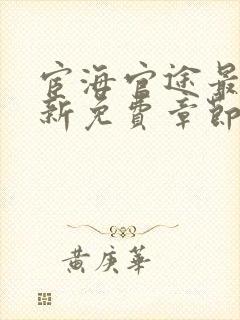 宦海官途最
新免費章節
黄庚華